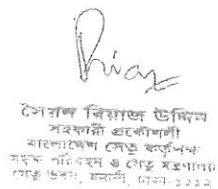 Riaz
সৈয়দ রিয়াজ উদ্দিন
সহকারী প্রকৌশলী
বাংলাদেশ সেতু কর্তৃপক্ষ
সড়ক পরিবহন ও সেতু মন্ত্রণালয়
সেতু ভবন, বনানী, ঢাকা-১২১২